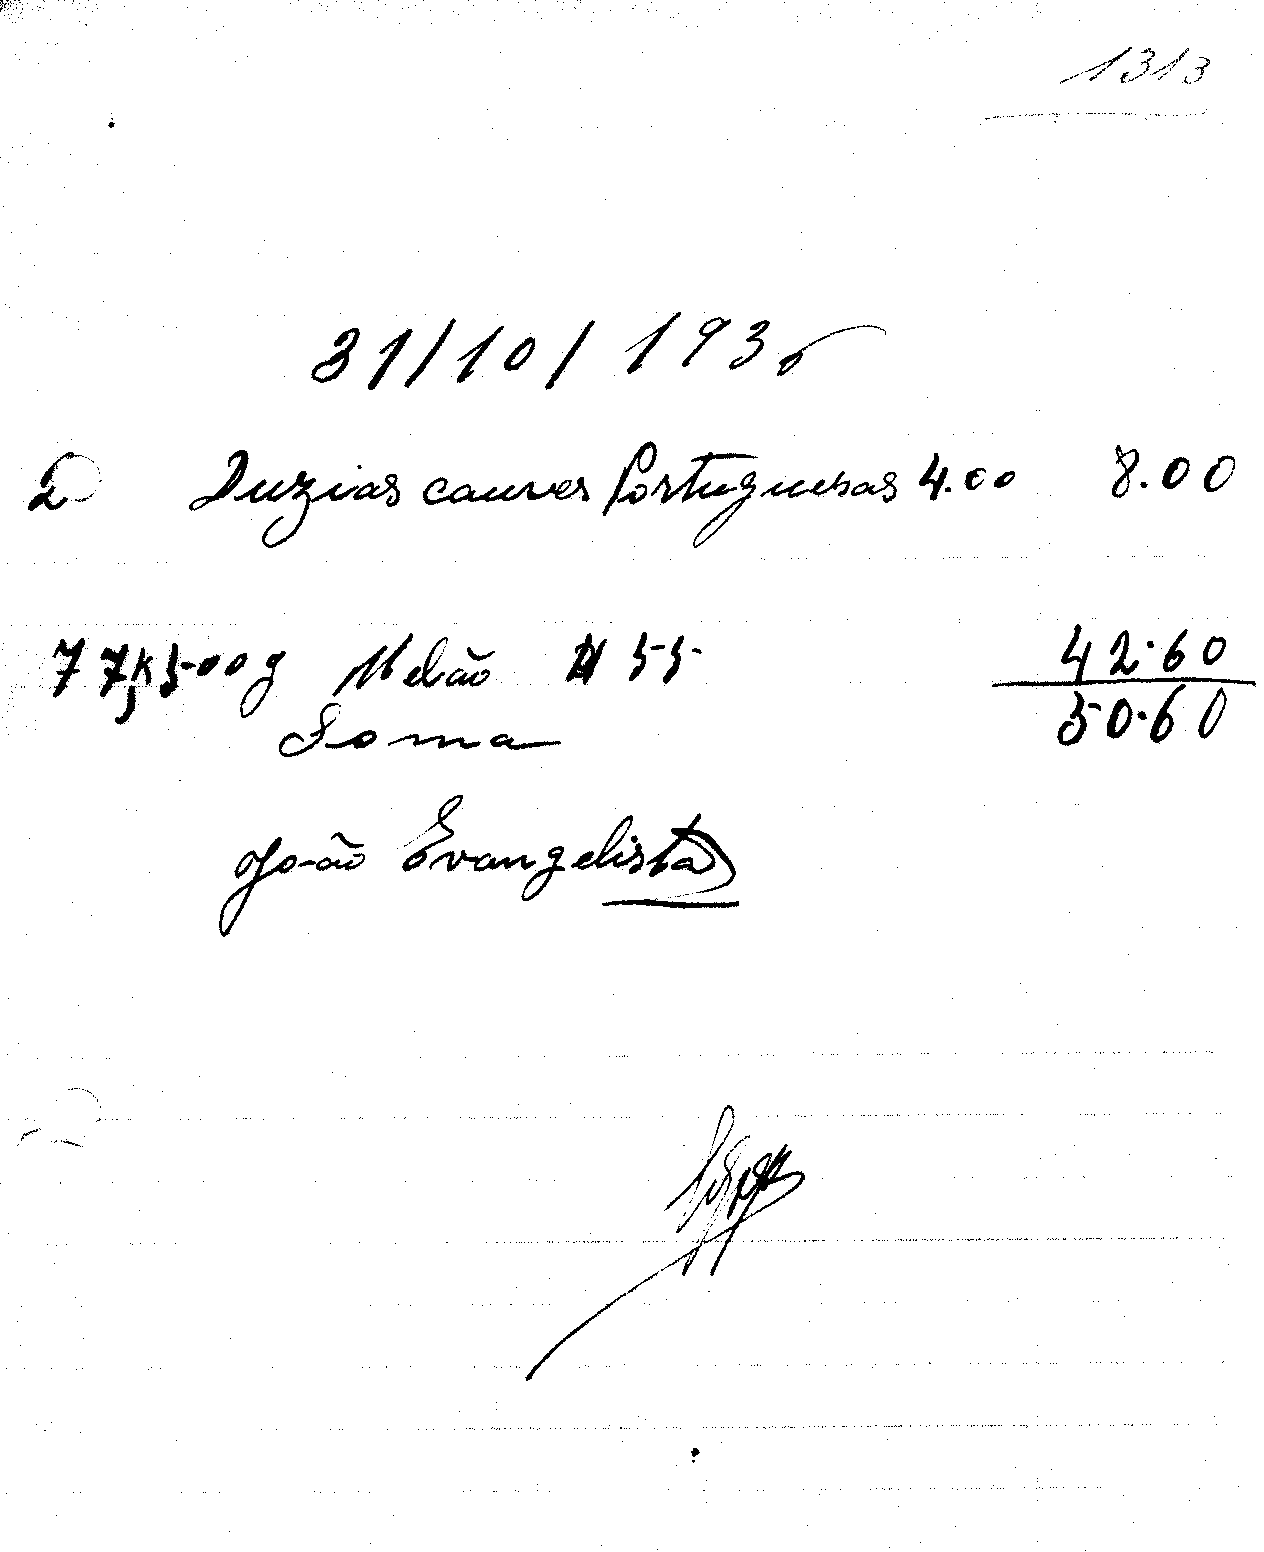 1313
31/10/1935
2 Duzias couves Portuguesas 4.00 8.00
77,k500g Melão A 55 42.60
Soma 50.60
João Evangelista